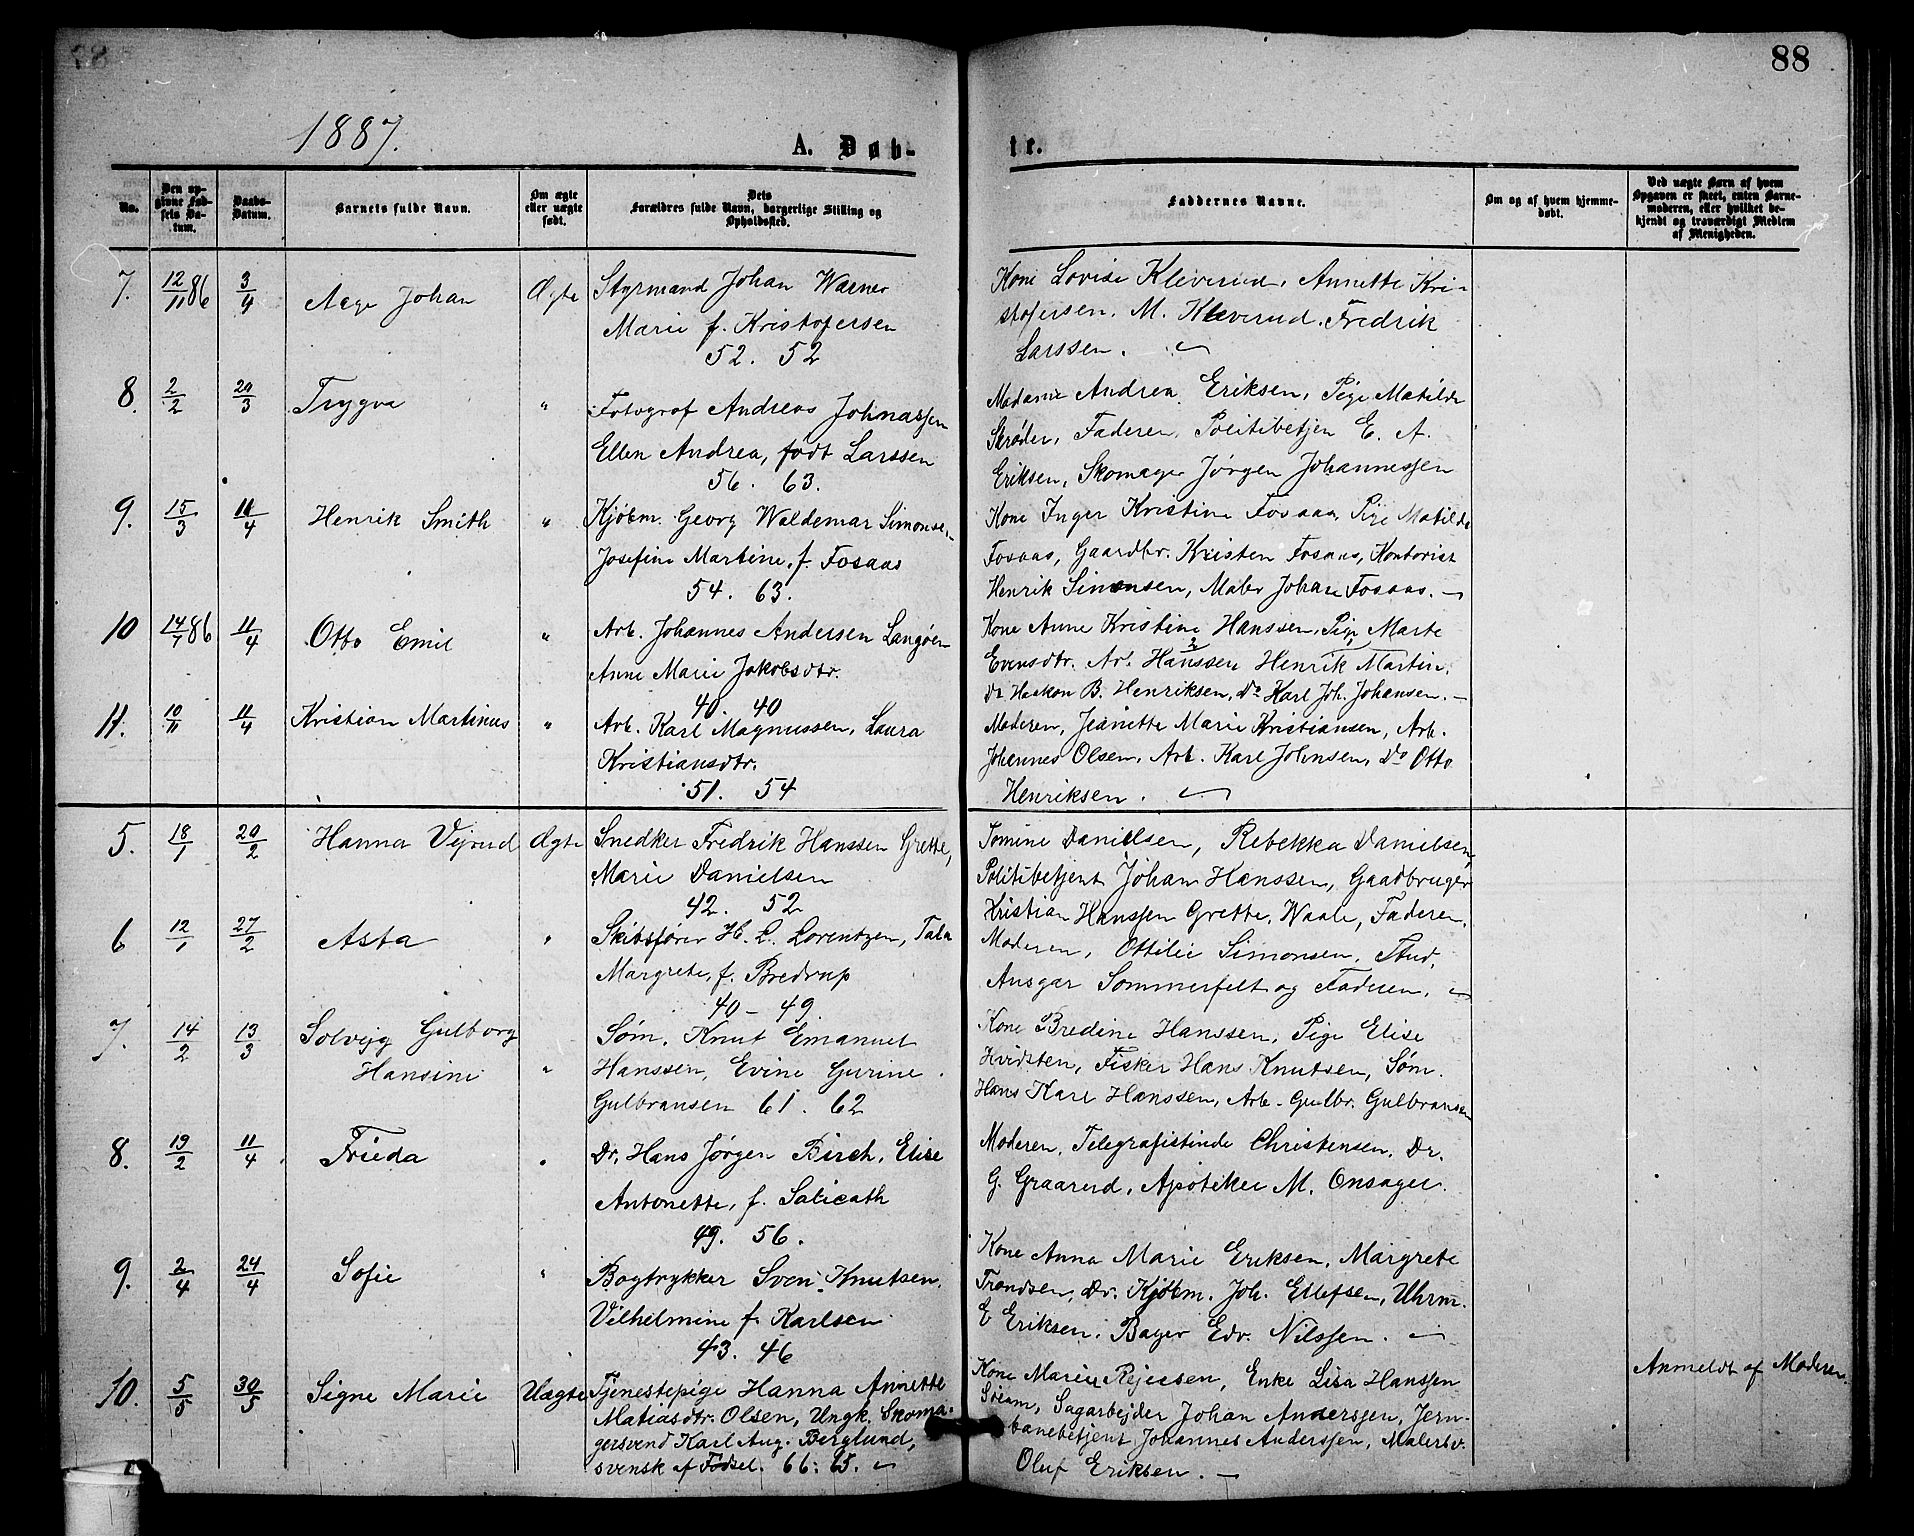 88
1887.
A. Døb-
te.
No.
Den opgivne Fødsels Datum.
Daabs-Datum.
Barnets fulde Navn.
Om ægte eller uægte født.
Dets Forældres fulde Navn, borgerlige Stilling og Opholdssted.
Faddernes Navne.
Om og af hvem hjemmedøbt.
Ved uægte Børn af hvem Opgaven er skeet, enten Barnemoderen, eller hvilket bekjendt og troværdigt Medlem af Menigheden.
7. 12/11 86 3/4 Aage Johan Ægte Styrmand Johan Warner
Marie f. Kristofersen
52. 52
Kone Lovise Kleverud, Annette Kri-
stofersen, M. Kleverud, Fredrik
Larssen.
8. 2/2 20/3 Trygva " Fotograf Andreas Johnassen
Ellen Andrea, født Larssen
56. 63.
Madame Andrea Eriksen, Pige Matilde
Skrøder, Faderen, Politibetjen E. A.
Eriksen, Skomager Jørgen Johannessen
9. 15/3 11/4 Henrik Smith " Kjøbm. Georg Waldemar Simonse-
Josefine Martine, f. Fosaas
54. 63.
Kone Inger Kristine Fosaas, Pige Matilde
Fosaas, Gaardbr. Kristen Fosaas, Kontorist
Henrik Simonsen, Maler Johan Fosaas.
10 14/7 86 11/4 Otto Emil " Arb. Johannes Andersen Langøen
Anne Marie Jakobsdtr.
40. 40
Kone Anne Kristine Hanssen, Pige Marte
Evensdtr. Ar. Hanssen Henrik Martin,
Do Haakon B. Henriksen, Do Karl Joh. Johansen.
11. 10/11 11/4 Kristian Martinus " Arb. Karl Magnussen, Laura
Kristiansdtr.
51. 54
Moderen, Jeanette Marie Kristiansen, Arb.
Johannes Olsen, Arb. Karl Johnsen, Do Otto
Henriksen.
5. 18/1 20/2 Hanna Vejrud Ægte Snedker Fredrik Hanssen Grette,
Marie Danielsen
42. 52
Tomine Danielsen, Rebekka Danielsen,
Politibetjent Johan Hanssen, Gaadbruger
Kristian Hanssen Grette, Waale, Faderen.
6 12/1 27/2 Asta " Skibsfører H. L. Lorentzen, Tala
Margrete, f. Bredrup
40 - 49.
Moderen, Ottilie Simonsen, Stud.
Ansgar Sommerfelt og Faderen.
7. 14/2 13/3 Solvejg Gulborg
Hansine " Søm. Knut Emanuel
Hanssen, Evine Gurine
Gulbransen 61. 62
Kone Bredine Hanssen, Pige Elise
Hvidsten, Fisker Hans Knutsen, Søm.
Hans Karl Hanssen, Arb. Gulbr. Gulbransen
8. 19/2 11/4 Frieda " Dr. Hans Jørgen Birch, Elise
Antonette, f. Salicath
49. 56.
Moderen, Telegrafistinde Christensen, Dr.
G. Graarud, Apotiker M. Onsager.
9. 2/4 24/4 Sofie " Bogtrykker Sven Knutsen,
Vilhelmine f. Karlsen
43. 46
Kone Anna Marie Eriksen, Margrete
Trondsen, Dr. Kjøbm. Joh. Ellefsen, Uhrm.
E Eriksen, Bager Edv. Nilssen.
10. 5/5 30/5 Signe Marie Uægte Tjenestepige Hanna Annette
Matiasdtr. Olsen, Ungk. Skoma-
gersvend Karl Aug. Berglund,
svensk af Fødsel. 66. 65.
Kone Marie Rejersen, Enke Lisa Hanssen
Sagarbejder Johan Anderssen, Jern-
banebetjent Johannes Anderssen, Malersv.
Oluf Eriksen.
Anmeldt af Moderen.